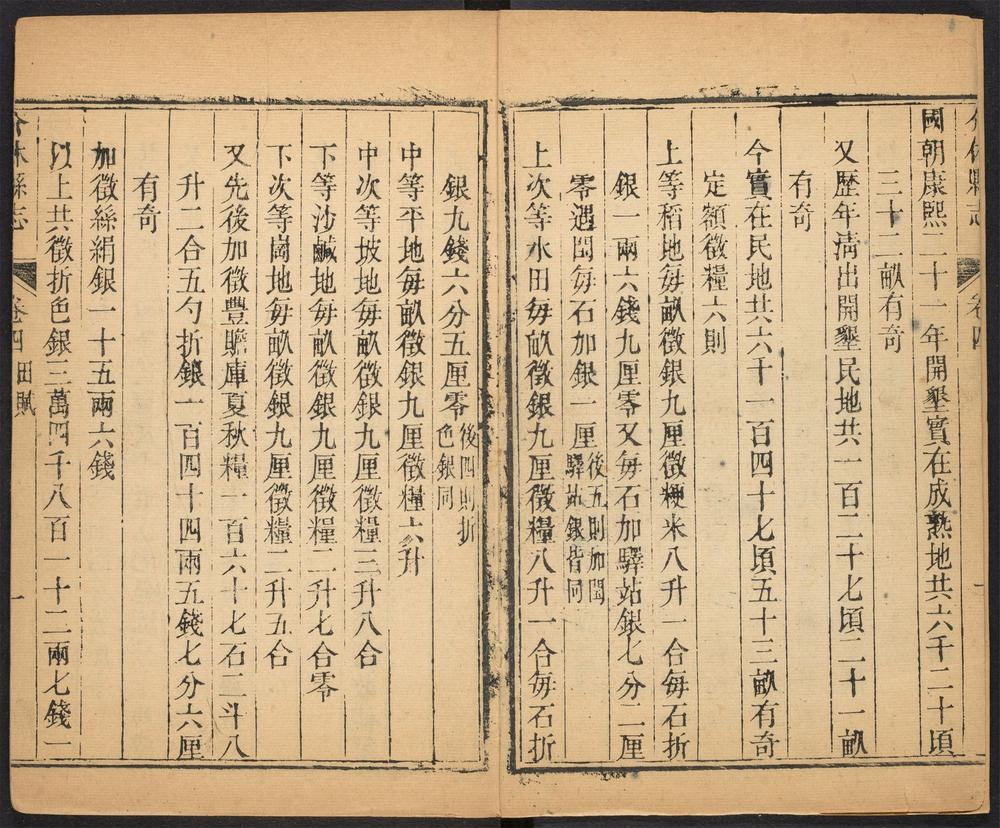 國朝康熙二十一年開墾實在成熟地共六千二十頃
三十二畝有奇
又歷年清出開墾民地共一百二十七頃二十一畝
有奇
今實在民地共六千一百四十七頃五十三畝有奇
定額徵糧六則
上等稻地每畝徵銀九厘徵粳米八升一合每石折
銀一兩六錢九厘零又每石加驛站銀七分二厘
零遇閏每石加銀一厘後五則加閏
驛站銀皆同
上次等水田每畝徵銀九厘徵糧八升一合每石折
銀九錢六分五厘零後四則折
色銀同
中等平地每畝徵銀九厘徵糧六升
中次等坡地每畝徵銀九厘徵糧三升八合
下等沙鹹地每畝徵銀九厘徵糧二升七合零
下次等崗地每畝徵銀九厘徵糧二升五合
又先後加徵豐贍庫夏秋糧一百六十七石二斗八
升二合五勺折銀一百四十四兩五錢七分六厘
有奇
加徵絲絹銀一十五兩六錢
以上共徵折色銀三萬四千八百一十二兩七錢一
介休縣志 卷四 田賦 一